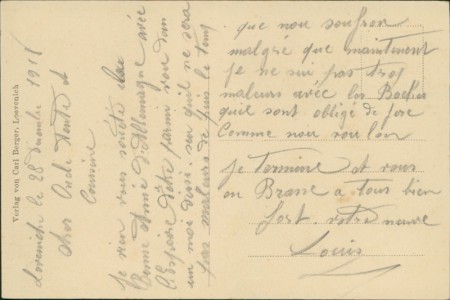 Verlag von Carl Berger, Loevenich
Lovenich le 28 Decembre 1918
Cher Oncle Tante et
Cousine
Je vien vous souété une
Bonne Année d'Allemagne avéc
l'Espoire d'étre parmi vou dan
un moi d'ici. seu qui ne sera
pas maleureu de puis le temp
que nou soufron
malgré que maintenent
je ne sui pas trop
maleurs avéc les Boches
quil sont obligé de fere
Comme nou voulon
je termine et vous
en Brasse a tous bien
fort. votre neuveu
Louis